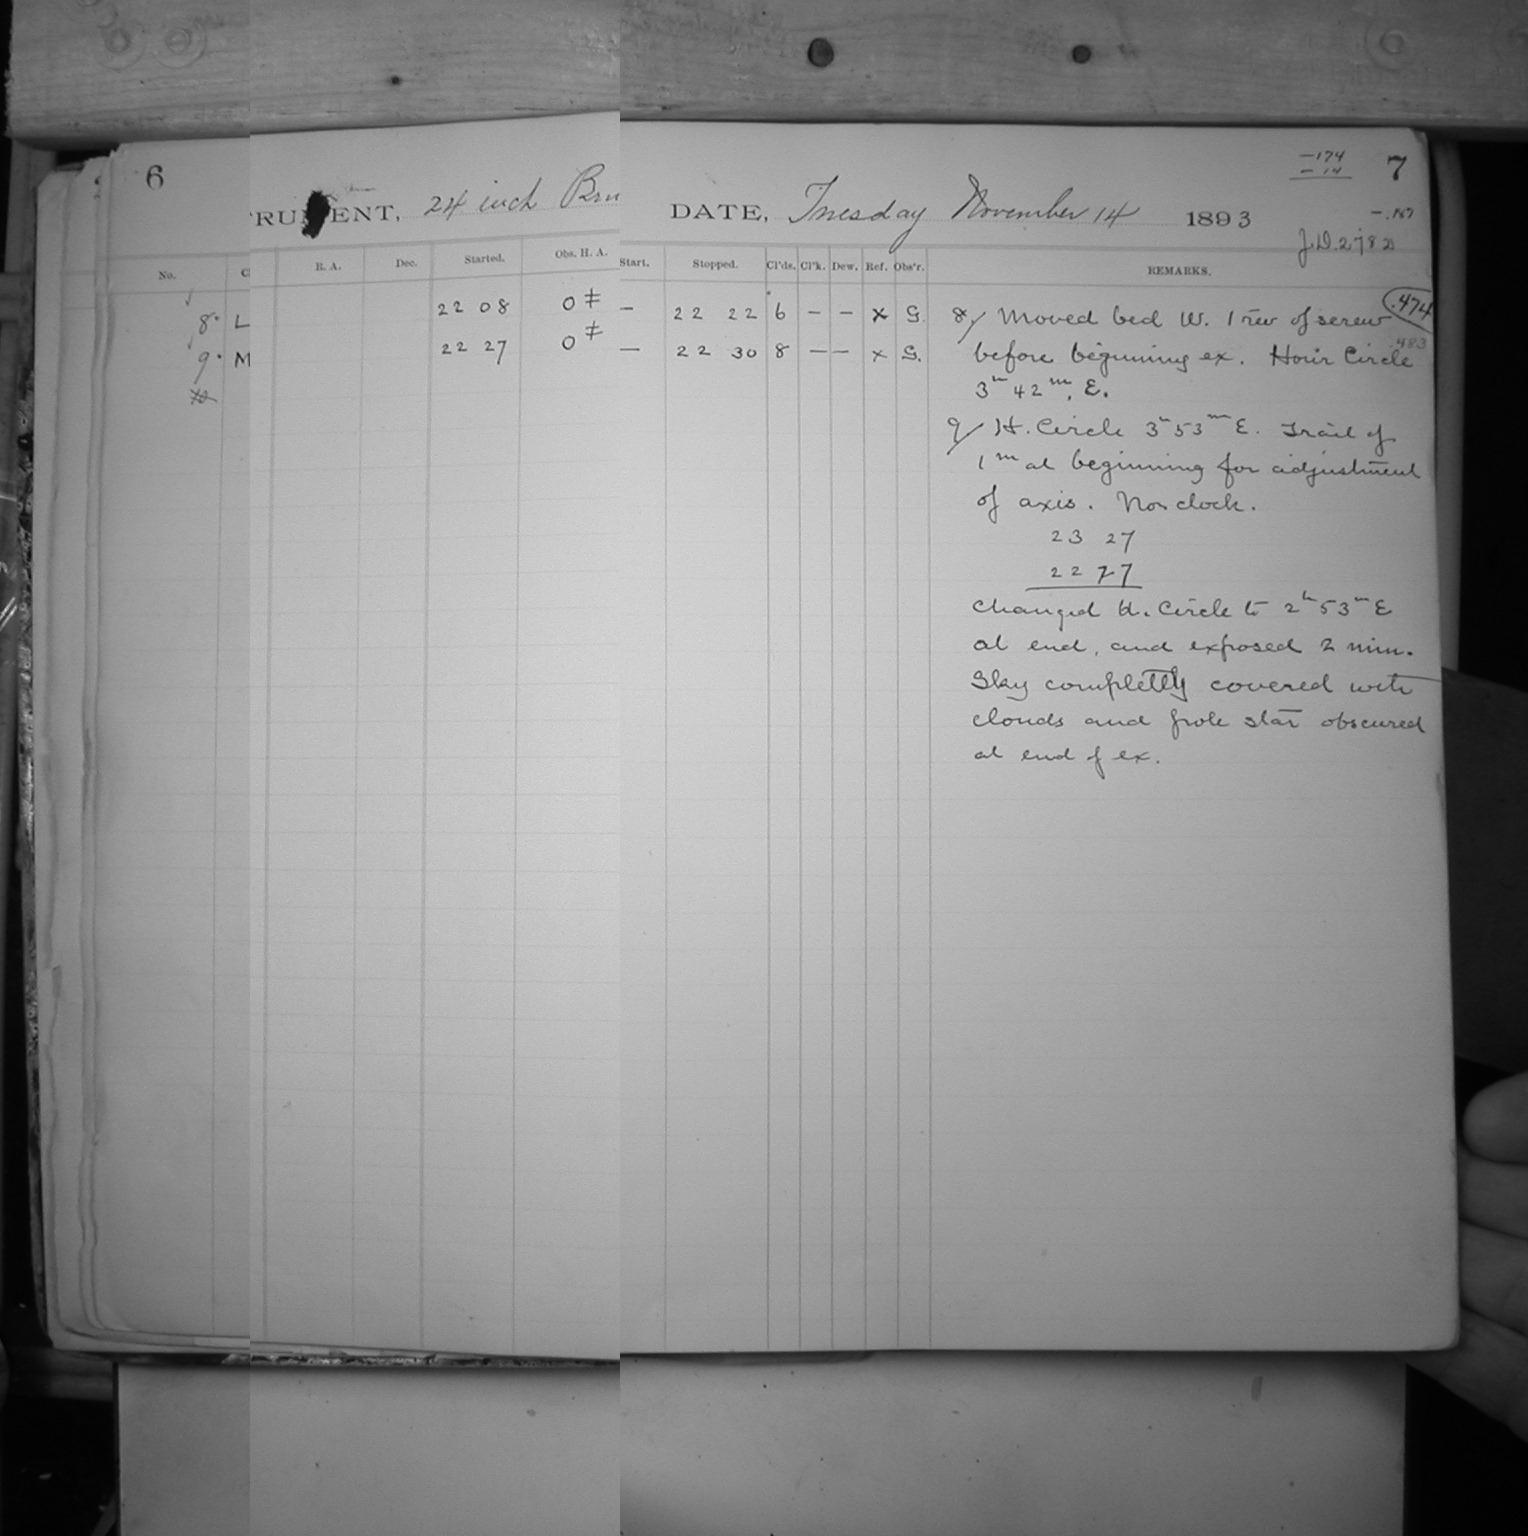 6
RUMENT, 24 inch Bru
DATE, Tuesday November 14 1893
-174
-14
7
-.187
J.D. 2782
No. Cl R. A. Dec. Started. Obs. H. A. Start. Stopped. Cl'ds. Cl'k. Dew. Ref. Obs'r. REMARKS.
8. L 22 08 0 ‡ — 22 22 6 — — x G.
9. M 22 27 0 ‡ — 22 30 8 — — x G.
.474
8/ Moved bed W. 1 rev of screw
.483
before beginning ex. Hour Circle
3h 42m. E.
9/ H. Circle 3h 53m E. Trail of
1m at beginning for adjustment
of axis. No clock.
23 27
22 27
Changed H. Circle to 2h 53m E
at end, and exposed 2 min.
Sky completly covered with
clouds and pole star obscured
at end of ex.